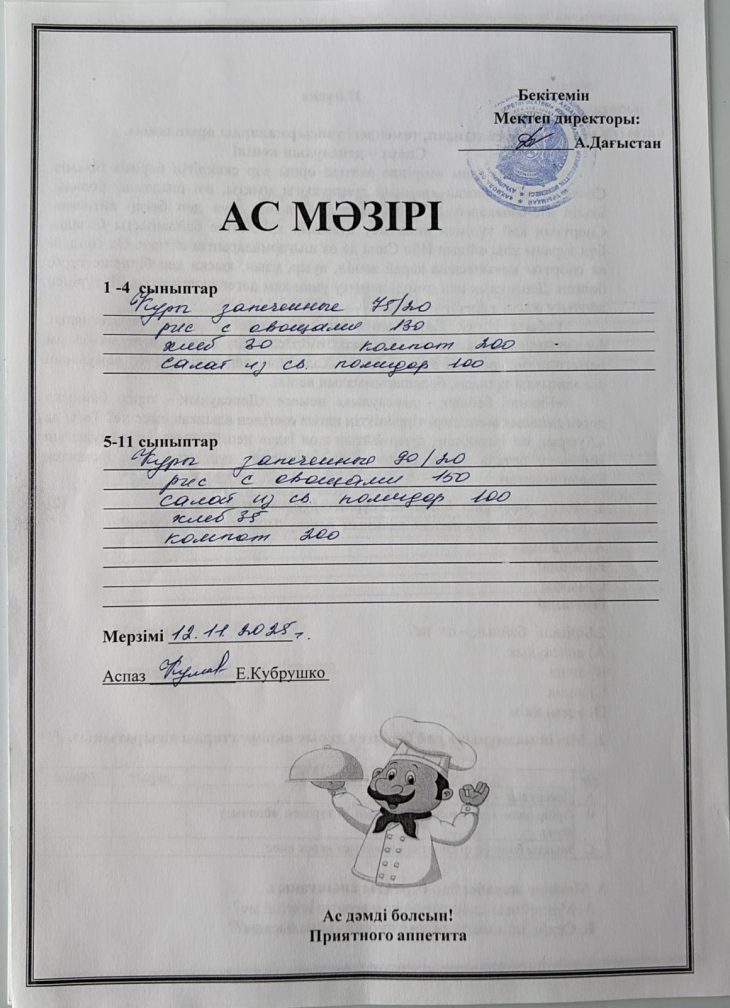 Бекітемін
Мектеп директоры:
А.Дағыстан
АС МӘЗІРІ
1 -4 сыныптар
Куры запеченные 75/20
рис с овощами 130
хлеб 30 компот 200
салат из св. помидор 100
5-11 сыныптар
Куры запеченные 90/20
рис с овощами 150
салат из св. помидор 100
хлеб 35
компот 200
Мерзімі 12.11.2025 г.
Аспаз Е.Кубрушко
Ас дәмді болсын!
Приятного аппетита